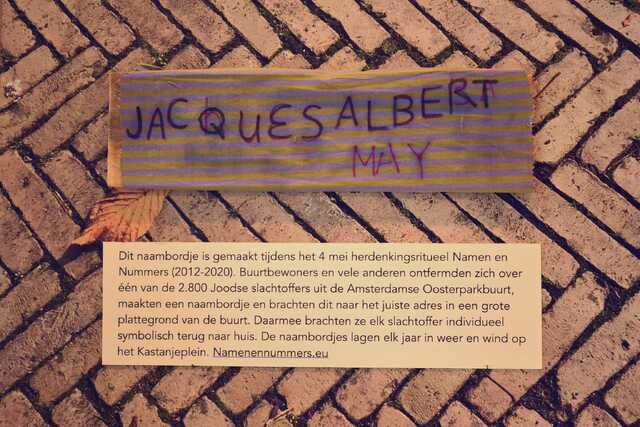 JACQUES ALBERT
MAY
Dit naambordje is gemaakt tijdens het 4 mei herdenkingsritueel Namen en
Nummers (2012-2020). Buurtbewoners en vele anderen ontfermden zich over
één van de 2.800 Joodse slachtoffers uit de Amsterdamse Oosterparkbuurt,
maakten een naambordje en brachten dit naar het juiste adres in een grote
plattegrond van de buurt. Daarmee brachten ze elk slachtoffer individueel
symbolisch terug naar huis. De naambordjes lagen elk jaar in weer en wind op
het Kastanjeplein. Namenennummers.eu